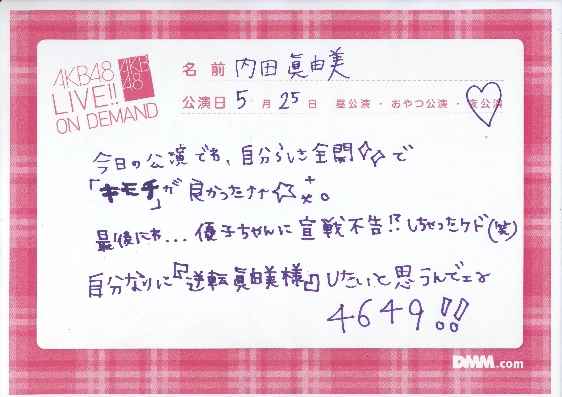 AKB48
LIVE!!
ON DEMAND
AKB
48
名前 内田眞由美
公演日 5月25日 昼公演・おやつ公演・夜公演
今日の公演でも、自分らしさ全開☆☆で
「キモチ」が良かったナナ☆+×。
最後にわ...優子ちゃんに宣戦不告!?しちゃったケド(笑)
自分なりに『逆転眞由美様』したいと思うんでェよ
4649!!
DMM.com